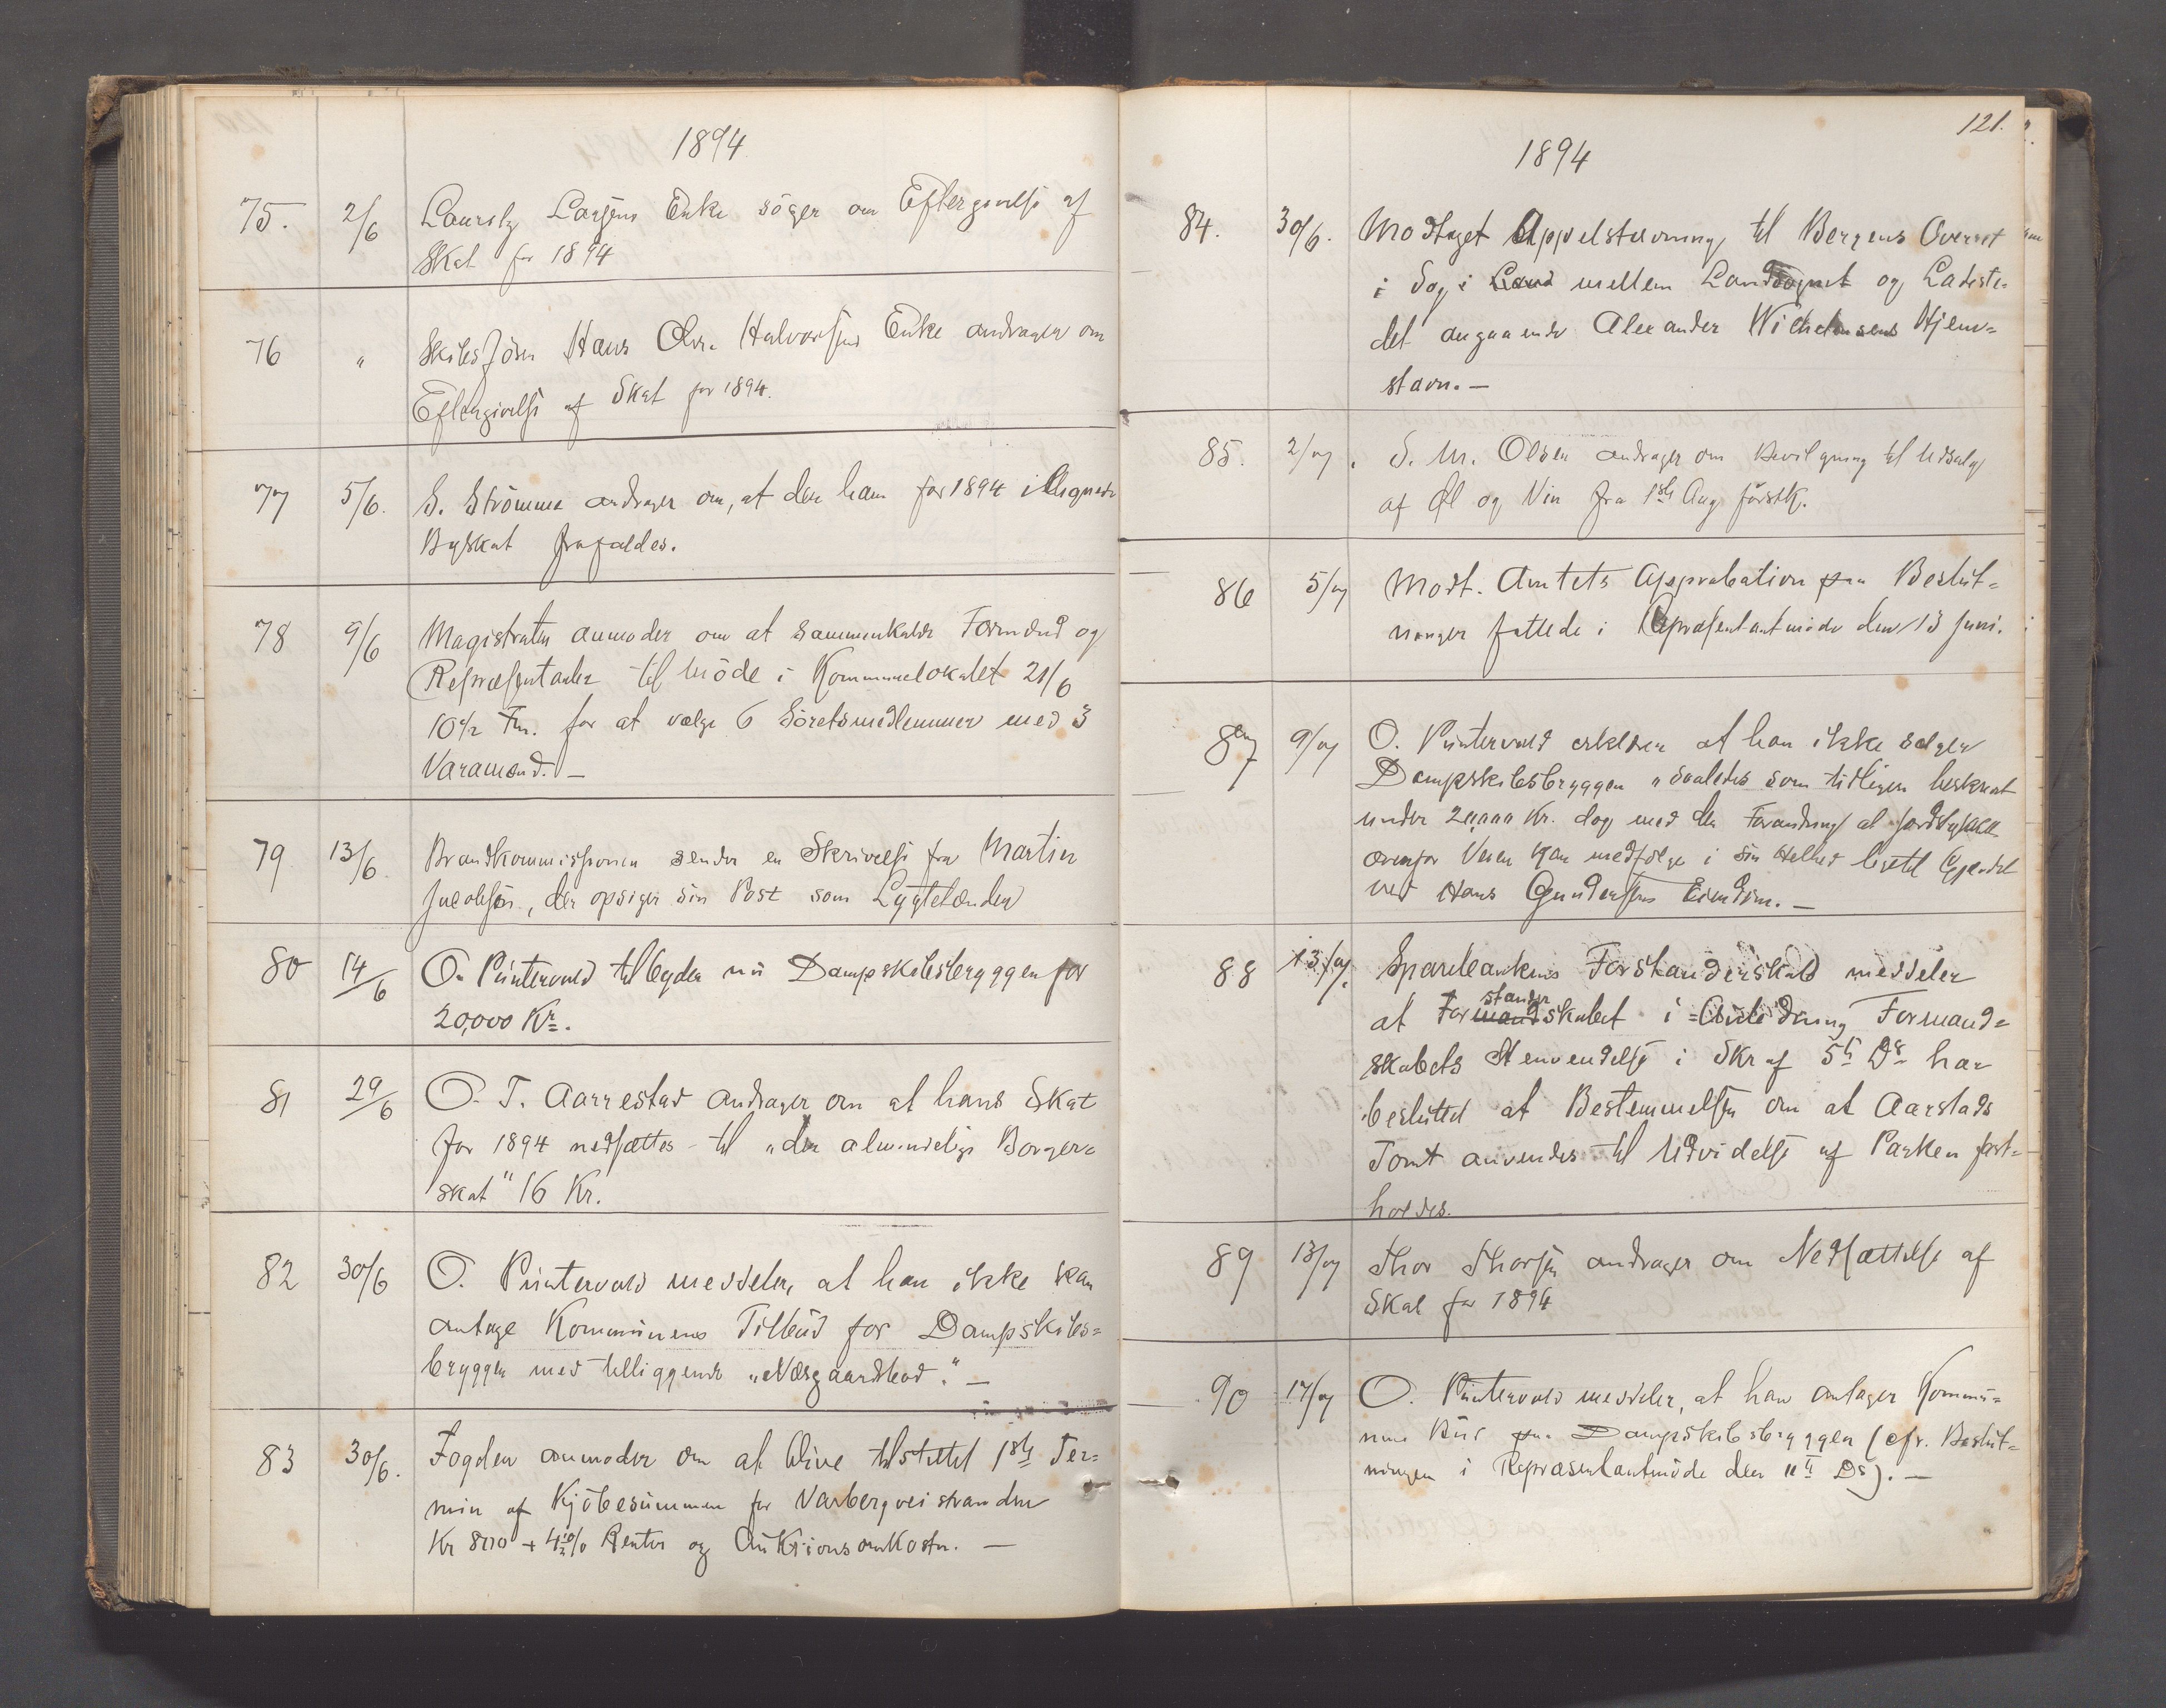 1894
75. 2/6 Lauritz Larsens Enke söger om Eftergivelse af
Skat for 1894
76 " Skibsförer Hans Chr. Halvorsens Enke andrager om
Eftergivelse af Skat for 1894.
77 5/6. S. Strömme andrager om, at den ham for 1894 ilignede
Byskat frafaldes.
78 9/6 Magistraten anmoder om at sammenkalde Formænd og
Repræsentanter til Möde i Kommunelokalet 21/6
10 1/2 Fm. for at vælge 6 Söretsmedlemmer med 3
Varamænd. —
79 13/6 Brandkommissionen sender en Skrivelse fra Martin
Jacobsen, der opsiger sin Post som Lygtetænder
80 14/6 O. Puntervold tilbyder nu Dampskibsbryggen for
20,000 Kr.
81 29/6 O. T. Aarrestad andrager om at hans Skat
for 1894 nedsættes til "den almindelige Borger=
skat" 16 Kr.
82 30/6 O. Puntervold meddeler, at han ikke kan
antage Kommunens Tilbud for Dampskibs=
bryggen med tilliggende "Nærgaardsbod". —
83 30/6. Fogden anmoder om at blive tilstillet 1ste Ter=
min af Kjöbesummen for Varbergveistranden
Kr 800 + 4 1/2 % Renter og Auktionsomkostn. —
121.
1894
84. 30/6. Modtaget Appelstævning til Bergens Overret
i Sag i Land mellem Landsognet og Ladeste=
det angaaende Alexander Wilhelmsens Hjem=
stavn. —
85. 2/7. S. M. Olsen andrager om Bevilgning til Udsalg
af Øl og Vin fra 1ste Aug. förstk.
86 5/7 Modt. Amtets Approbation paa Beslut=
ninger fattede i Repræsentantmöde den 13 Juni.
87 9/7 O. Puntervold erklærer at han ikke sælger
Dampskibsbryggen "saaledes som tidligere beskrevet
under 20,000 Kr. dog med den Forandring at Jordstykket
ovenfor Veien kan medfølge i sin Helhed ligetil Gjerdet
ved Hans Gundersens Eiendom. —
88 13/7. Sparebankens Forstanderskab meddeler
stander
at Formandskabet i Anledning Formand=
skabets Henvendelse i Skr af 5te Ds har
besluttet at Bestemmelsen om at Aarstads
Tomt anvendes til Udvidelse af Parken fast=
holdes.
89 13/7 Thor Thorsen andrager om Nedsættelse af
Skat for 1894
90 17/7 O. Puntervold meddeler, at han antager Kommu=
nens Bud paa Dampskibsbryggen (cfr. Beslut=
ningen i Repræsentantmöde den 11te Ds). —